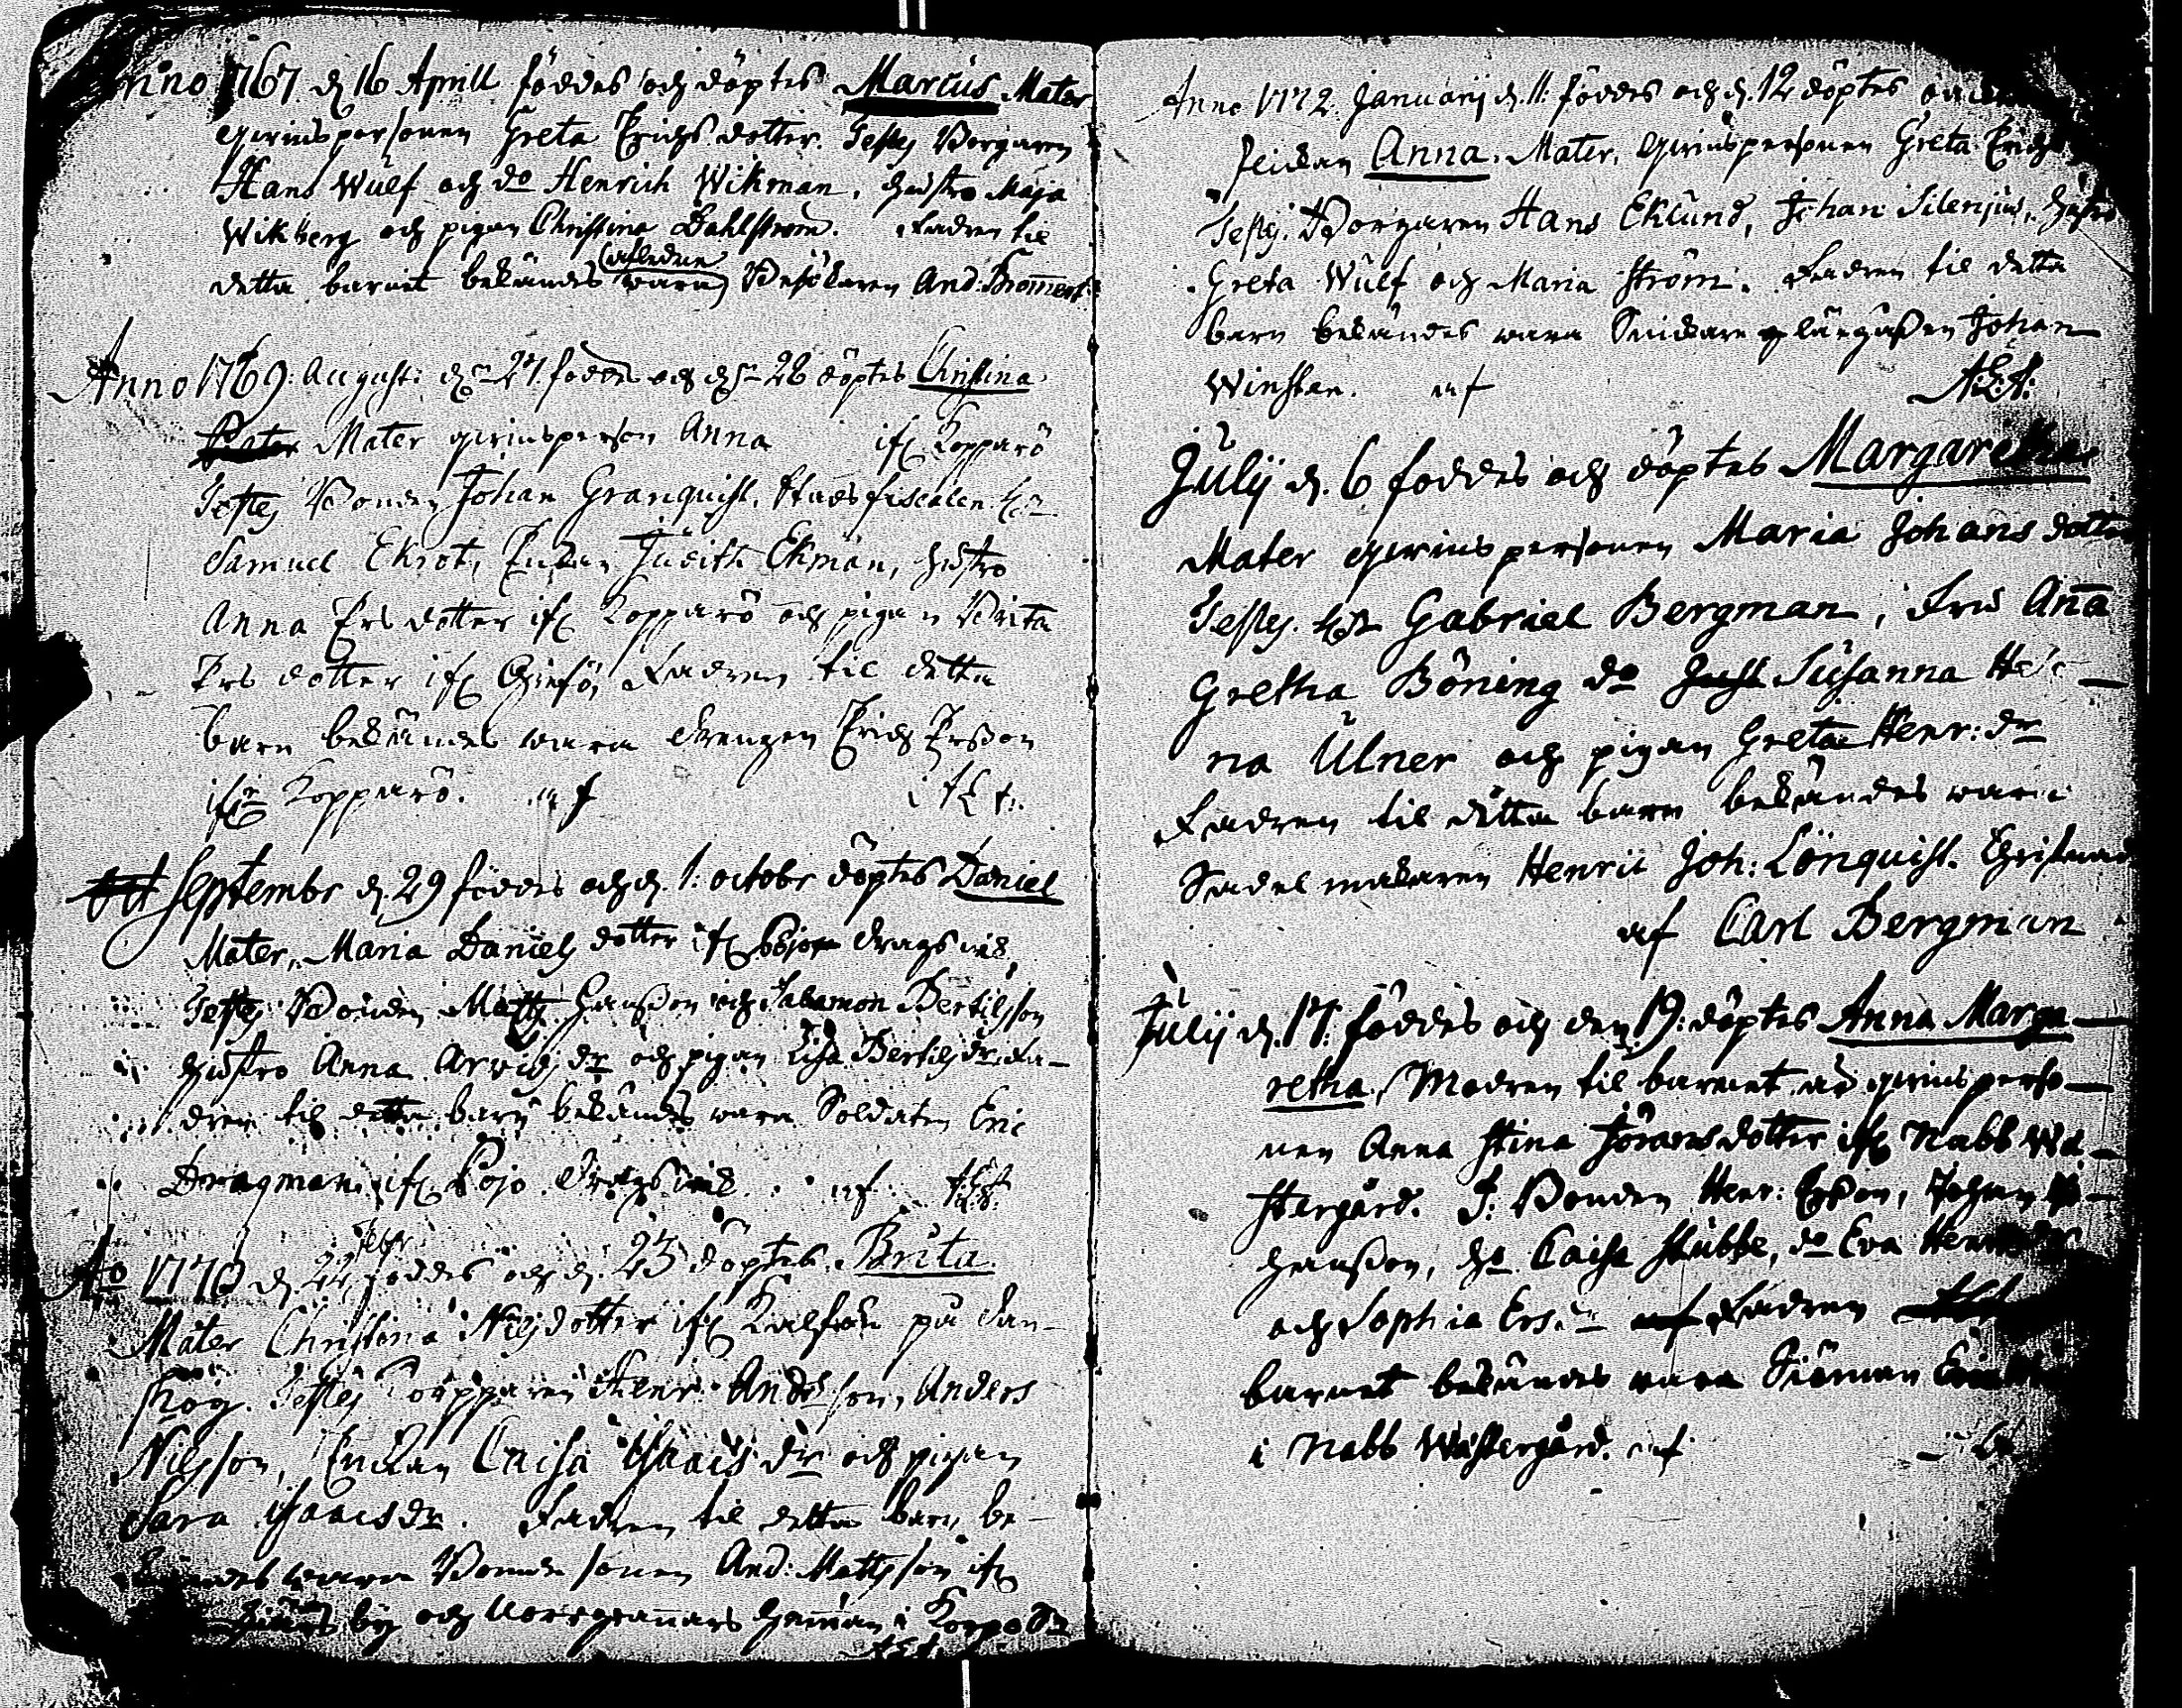 Anno 1767 d 16 Aprill föddes och döptes Marcus Mater
qwinspersonen Greta Erichsdotter. Testes Borgaren
Hans Wulf och do Henrich Wikman, hustro Maja
Wikberg och pigan Christina Dahlström. Fadren til
detta barnet bekändes (afledne wara) Besökaren And:
Anno 1769: August: d 27. föddes och d 28 döptes Christina
Mater qwinsperson Anna ifr Kopparö
Testes Bonden Johan Granquist, Stadsfiscalen Hr
Samuel Ekrot, Enkan Judith Ekman, hustro
Anna Ersdotter ifr Kopparö och pigan Brita
Ersdotter ifr Fadren til detta
barn bekändes wara drengen Erich Ersson
ifrn Kopparö. af
Septembr d. 29 föddes och d. 1. octobr döptes Daniel
Mater, Maria Daniels dotter ifr dragswik
Testes Bonden Matts Hansson och Salamon Bertilsson
hustro Anna Arvids dr och pigan Lisa Bertils dr. Fa-
dren til detta barn bekändes wara Soldaten Eric
Dragman ifr Pojo Dragswik. af
Ao 1770 d. 22 febr. föddes och d. 23 döptes Brita
Mater Christina Nilsdotter ifr på dan-
skog. Testes Torpparen Henr. Andersson, Anders
Nilsson, Enckan Caisa Isaacs dr och pigan
Sara Isaacsdr. Fadren til detta barn be-
kändes wara Bonde sonen And: Mattsson ifr
by och Norrgrannars hemman i Korpo Sn
Anno 1772. Januarij d. 11. föddes och d. 12 döptes
flickan Anna. Mater, qwinspersonen Greta Erichs
Testes. Borgaren Hans Eklund, Johan Silenius, hustro
Greta Wulf och Maria Ström. Fadren til detta
barn bekändes wara Snickare lärgåssen Johan
Winstan. af
Julij d. 6 föddes och döptes Margaretha
Mater qwinspersonen Maria Johansdotter
Testes. Hr Gabriel Bergman, Fru Anna
Gretha Böning do Susanna Hele-
na Ulner och pigan Greta Henr: dr
Fadren til detta barn bekändes wara
Sadelmakaren Henric Joh: Lönquist. Christnad
af Carl Bergman
Julij d. 17. föddes och den 19. döptes Anna Marga-
retha. Modren til barnet är qwinsperso-
nen Anna Stina Jöransdotter ifr Nabb Wä-
stergård. T: Bonden Henr: Ersson, Johan
Hansson, Ho Caisa Stubbe, do Eva Henr
och Sophia Ers.dr Fadren
barnet bekändes wara Siöman Eric
i Nabb Wästergård. af